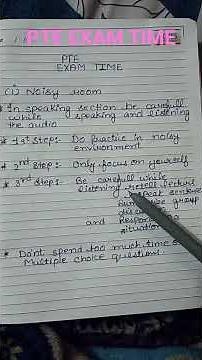 PTE EXAM TIME
PTE
EXAM TIME
(1) Noisy room
* In speaking section be carefull
while speaking and listening
the audio
* 1st Step:- Do practice in noisy
environment
* 2nd Step:- Only focus on yourself
* 3rd Step:- Be carefull while
listening retell lecture
repeat sentence
group
and
situation
* Don't spend too much time
Multiple choice questions.